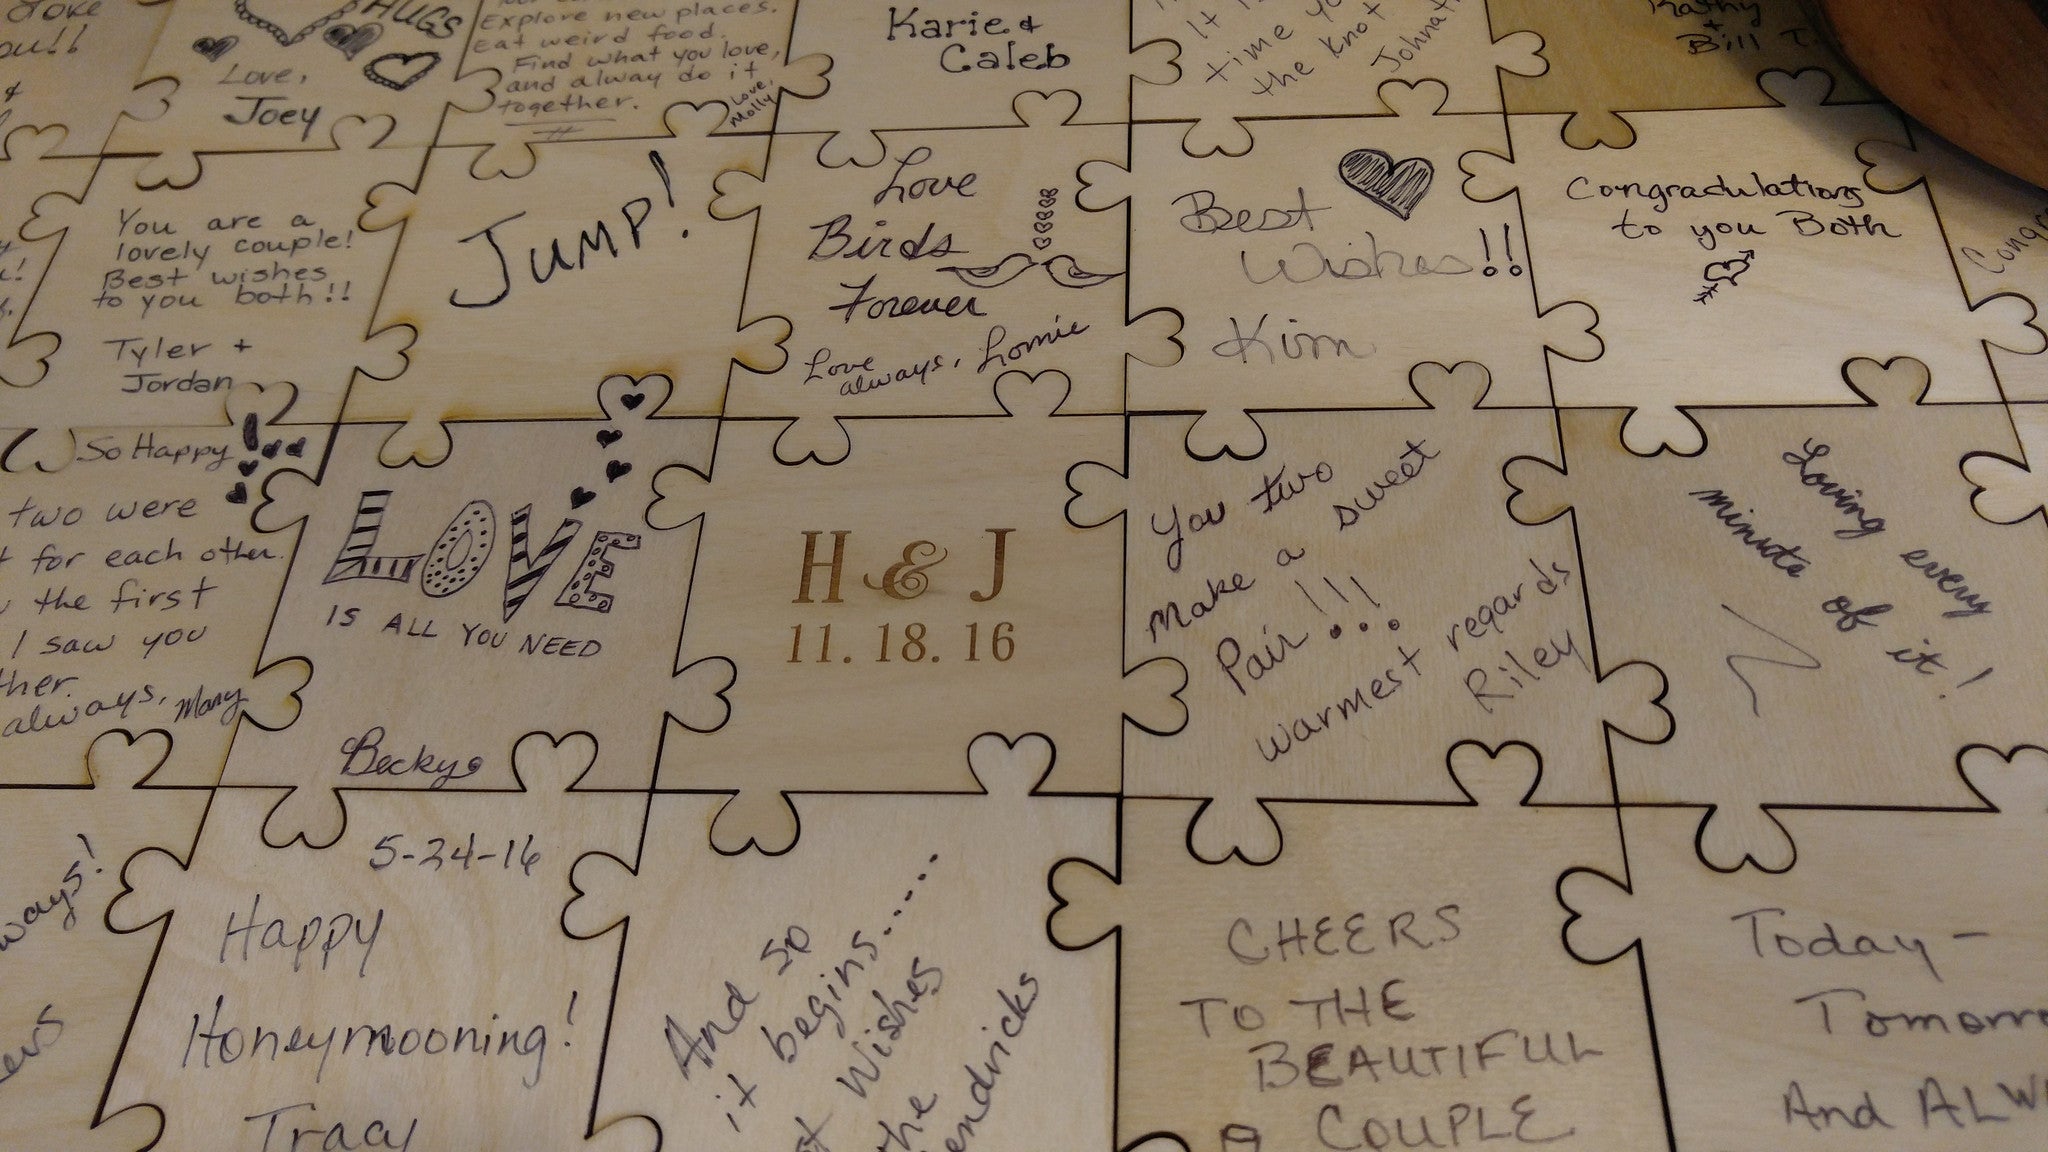 HUGS
Love,
Joey
Explore new places.
Eat weird food.
Find what you love,
and alway do it
together.
Love,
Molly
Karie &
Caleb
It
time
the knot
+
Bill T.
You are a
lovely couple!
Best wishes
to you both!!
Tyler +
Jordan
JUMP!
Love
Birds
Forever
Love
always, Lornie
Best
Wishes!!
Kim
Congradulations
to you Both
So Happy!
two were
for each other.
the first
I saw you
always, Mary
LOVE
IS ALL YOU NEED
Becky
H & J
11. 18. 16
You two
Make a sweet
Pair!!!
Warmest regards
Riley
Loving every
minute of it!
5-24-16
Happy
Honeymooning!
Tracy
And so
it begins......
Wishes
the
CHEERS
TO THE
BEAUTIFUL
COUPLE
Today -
And